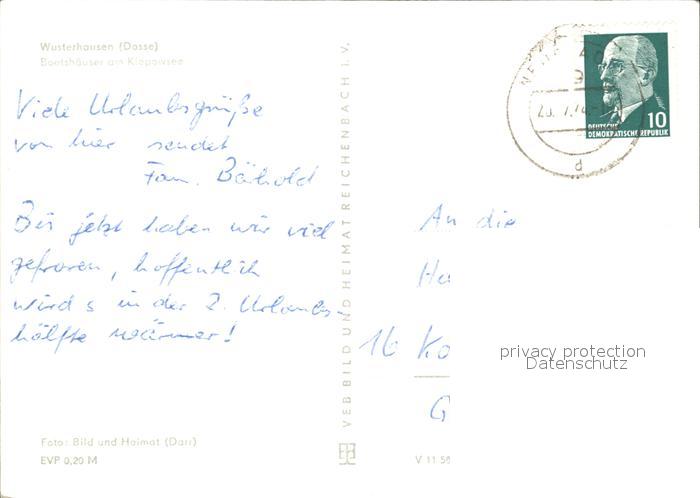 Wusterhausen (Dosse)
Bootshäuser am Klepowsee
Viele Urlaubsgrüße
von hier sendet
Fam. Bähold
Bis jetzt haben wir viel
gefroren, hoffentlich
wird s in der 2. Urlaubs-
hälfte wärmer!
Foto: Bild und Heimat (Darr)
EVP 0,20 M
VEB BILD UND HEIMAT REICHENBACH I. V.
10
DEUTSCHE
DEMOKRATISCHE REPUBLIK
d
An die
Ha
16 Ko
G
privacy protection
Datenschutz
V 11 50